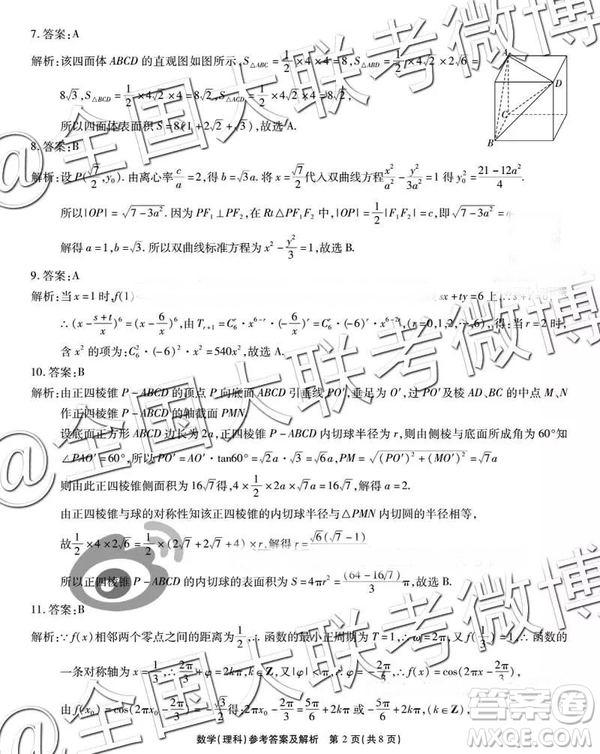 7. 答案:A
解析:该四面体 ABCD 的直观图如图所示, S△ABC = 1/2 × 4 × 4 = 8, S△ABD = 1/2 × 4√2 × 2√6 =
8√3, S△BCD = 1/2 × 4 × 4√2 = 8√2, S△ACD = 1/2 × 4√2 × 4 = 8√2,
所以四面体表面积 S = 8(1 + 2√2 + √3), 故选 A.
A
D
C
B
8. 答案:B
解析:设 P(√7/2, y₀). 由离心率 c/a = 2, 得 b = √3a. 将 x = √7/2 代入双曲线方程 x²/a² − y²/3a² = 1 得 y₀² = (21 − 12a²)/4.
所以 |OP| = √(7 − 3a²). 因为 PF₁ ⊥ PF₂, 在 Rt△PF₁F₂ 中, |OP| = 1/2 |F₁F₂| = c, 即 √(7 − 3a²) =
解得 a = 1, b = √3. 所以双曲线标准方程为 x² − y²/3 = 1, 故选 B.
9. 答案:A
解析:当 x = 1 时, f(1) sx + ty = 6 上
∴ (x − (s + t)/x)⁶ = (x − 6/x)⁶, 由 Tᵣ₊₁ = C₆ʳ · x⁶⁻ʳ · (−6/x)ʳ = C₆ʳ · (−6)ʳ · x⁶⁻²ʳ, (r = 0,1,2,⋯,6), 令 r = 2 时,
含 x² 的项为: C₆² · (−6)² · x² = 540x², 故选 A.
10. 答案:B
解析:由正四棱锥 P − ABCD 的顶点 P 向底面 ABCD 引垂线 PO′, 垂足为 O′, 过 PO′ 及棱 AD、BC 的中点 M、N
作正四棱锥 P − ABCD 的轴截面 PMN.
设底面正方形 ABCD 边长为 2a, 正四棱锥 P − ABCD 内切球半径为 r, 则由侧棱与底面的夹角为 60° 知
∠PAO′ = 60°, 所以 PO′ = AO′ · tan60° = √2a · √3 = √6a, PM = √((PO′)² + (MO′)²) = √7a
则由此正四棱锥侧面积为 16√7 得, 4 × 1/2 × 2a × √7a = 16√7, 得 a = 2.
由正四棱锥与球的对称性知该正四棱锥的内切球半径与 △PMN 内切圆的半径相等,
故 1/2 × 4 × 2√6 = 1/2 (2√7 + 2√7 + 4) × r, 解得 r = √6(√7 − 1)/3
所以正四棱锥 P − ABCD 的内切球的表面积为 S = 4πr² = (64 − 16√7)/3 π, 故选 B.
11. 答案:B
解析:∵ f(x) 相邻两个零点之间的距离为 1/2, ∴ 函数的最小正周期为 T = 1, ∴ ω = 2π, 又 f(1/3) 函数的
一条对称轴为 x = 1/3, ∴ 2π/3 + φ = 2kπ, k∈Z, 又 |φ| < π, ∴ φ = − 2π/3, ∴ f(x) = cos(2πx − 2π/3),
由 f(x₀) = cos(2πx₀ − 2π/3) = 得 2πx₀ − 2π/3 = 5π/6 + 2kπ 或 2πx₀ − 2π/3 = − 5π/6 + 2kπ,
数学(理科)参考答案及解析 第 2 页(共 8 页)
@全国大联考微博
@全国大联考微博
@全国大联考微博
答案圈
MXQE.COM